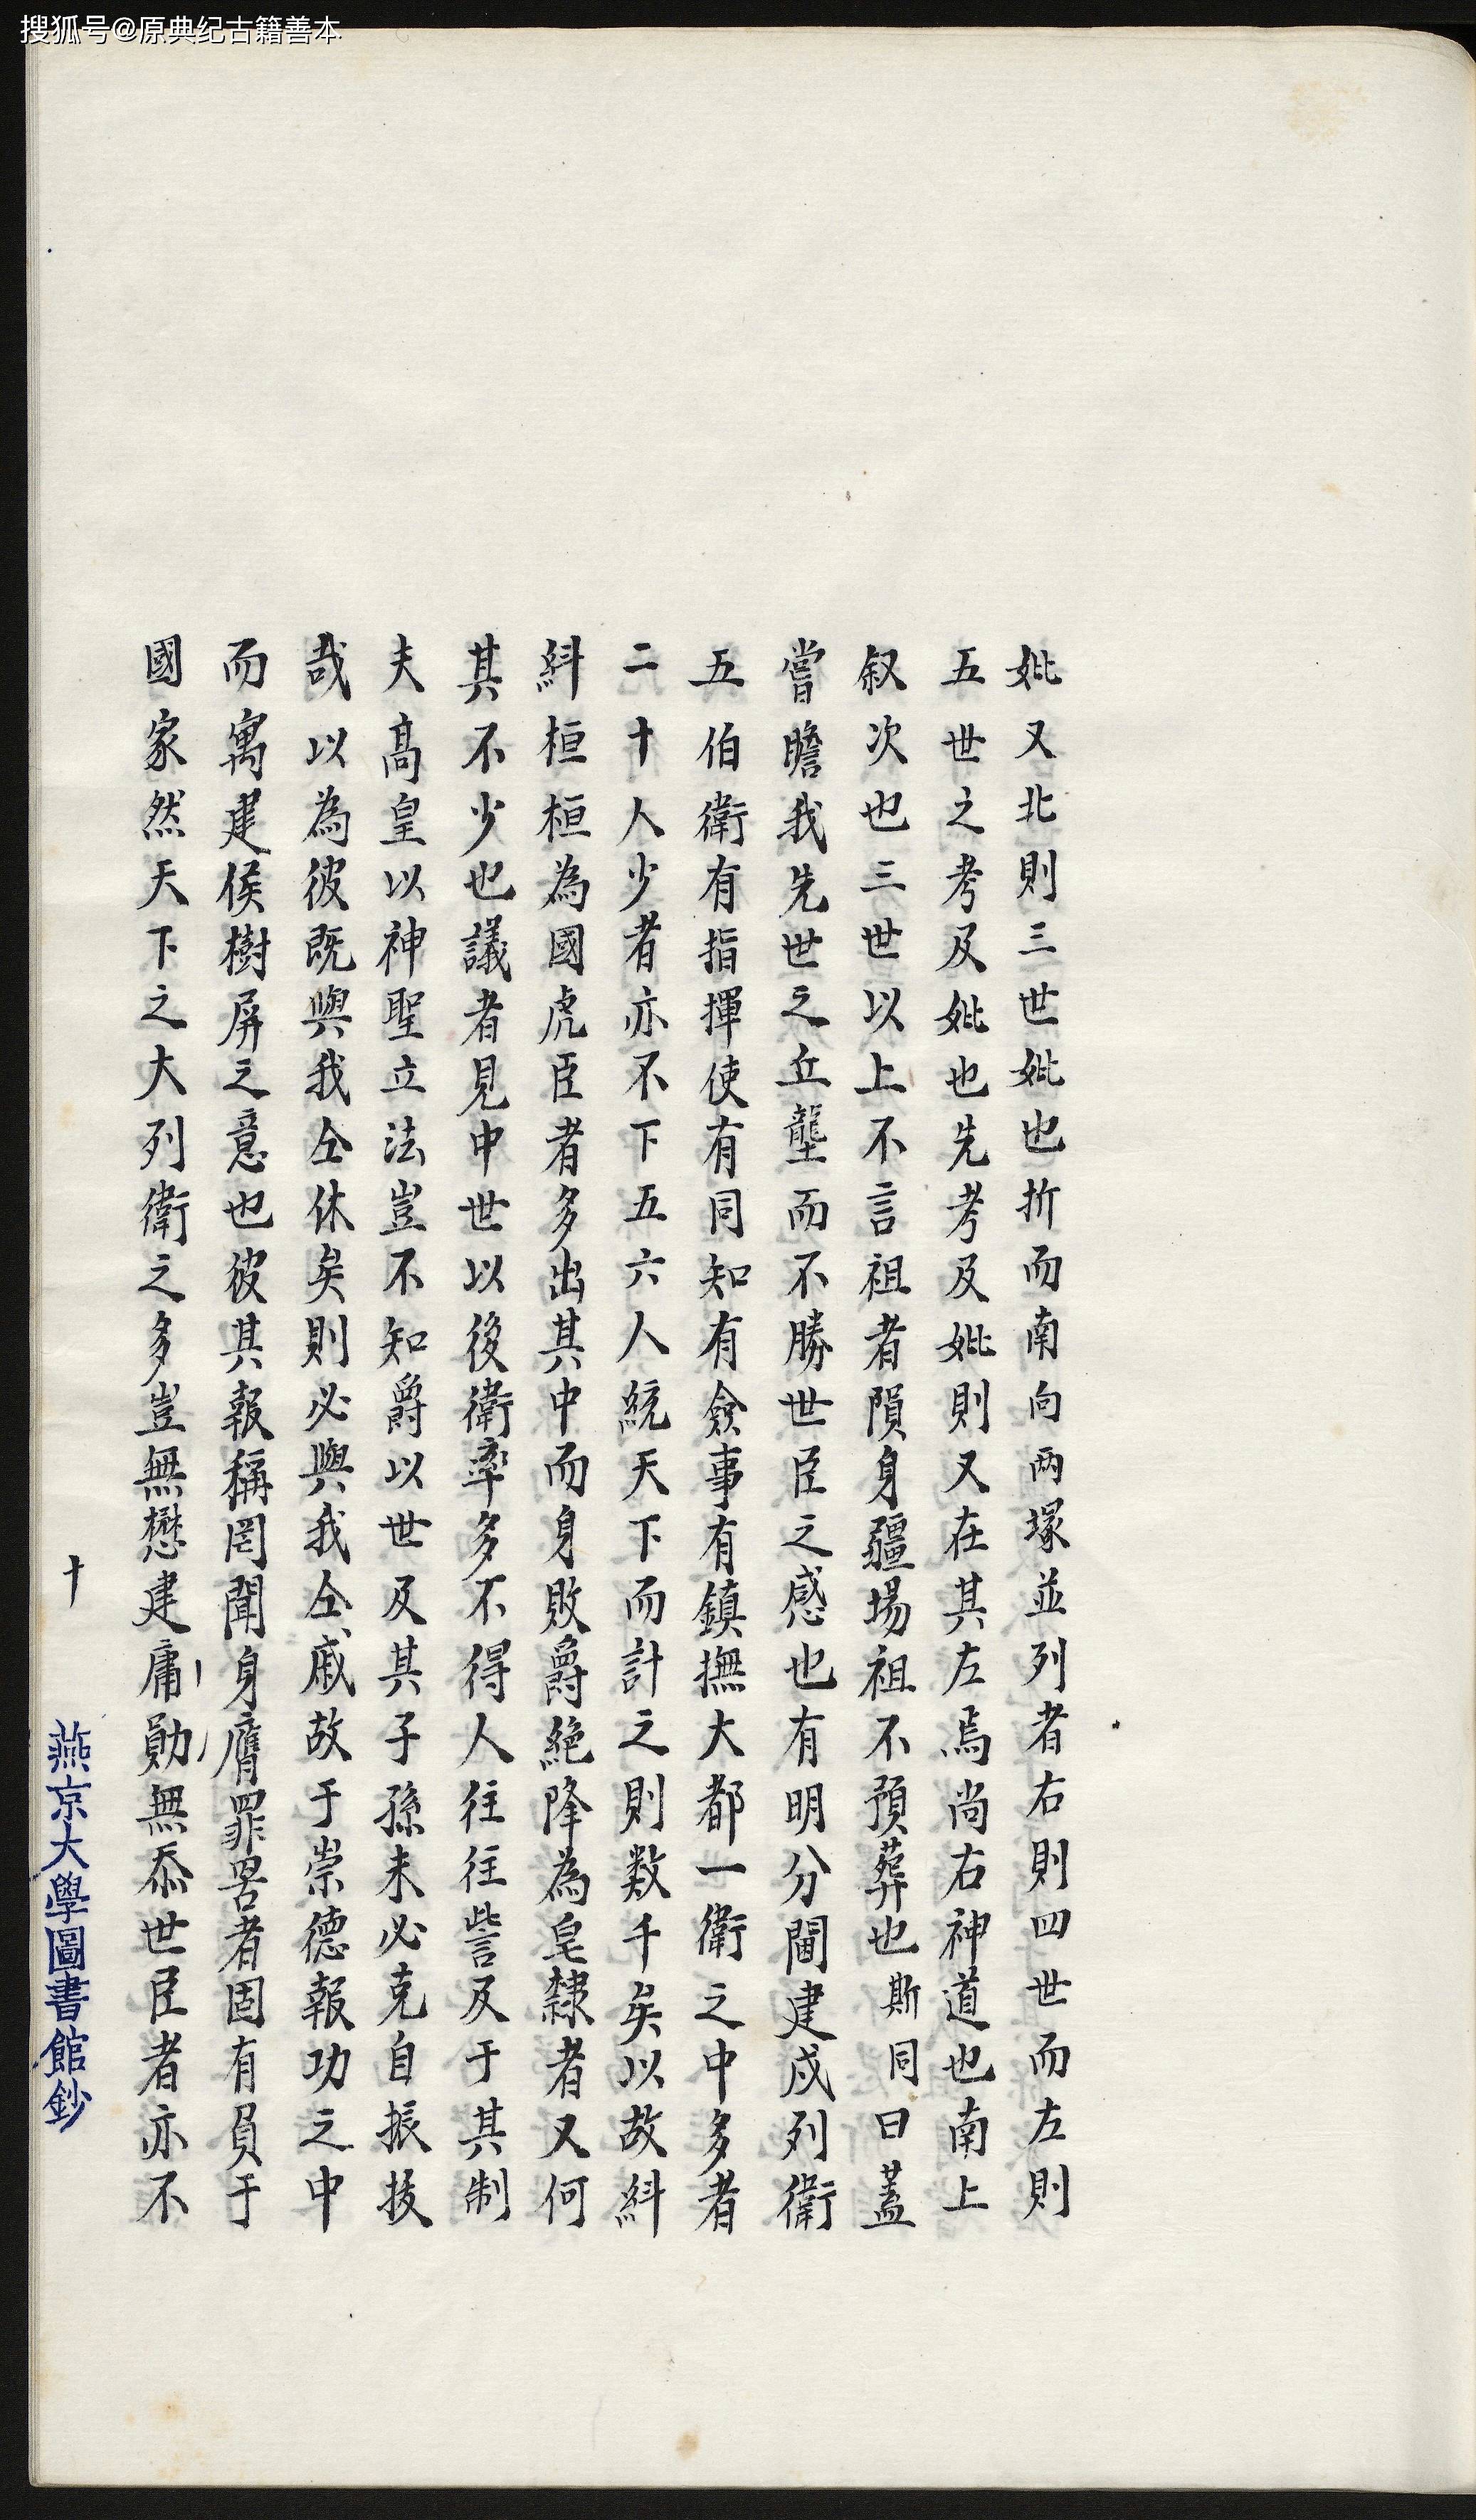 搜狐号@原典纪古籍善本
妣又北則三世妣也折而南向两塚並列者右則四世而左則
五世之考及妣也先考及妣則又在其左焉尚右神道也南上
叙次也三世以上不言祖者隕身疆場祖不預葬也斯同曰蓋
嘗瞻我先世之丘壟而不勝世臣之感也有明分閫建戍列衛
五伯衛有指揮使有同知有僉事有鎮撫大都一衛之中多者
二十人少者亦不下五六人統天下而計之則数千矣以故糾
糾桓桓為國虎臣者多出其中而身敗爵絕降為皂隸者又何
其不少也議者見中世以後衛率多不得人往往訾及于其制
夫高皇以神聖立法豈不知爵以世及其子孫未必克自振拔
哉以為彼既與我仝休矣則必與我仝戚故于崇德報功之中
而寓建侯樹屏之意也彼其報稱罔聞身膺罪罟者固有負于
國家然天下之大列衛之多豈無懋建庸勛無忝世臣者亦不
十
燕京大學圖書館鈔